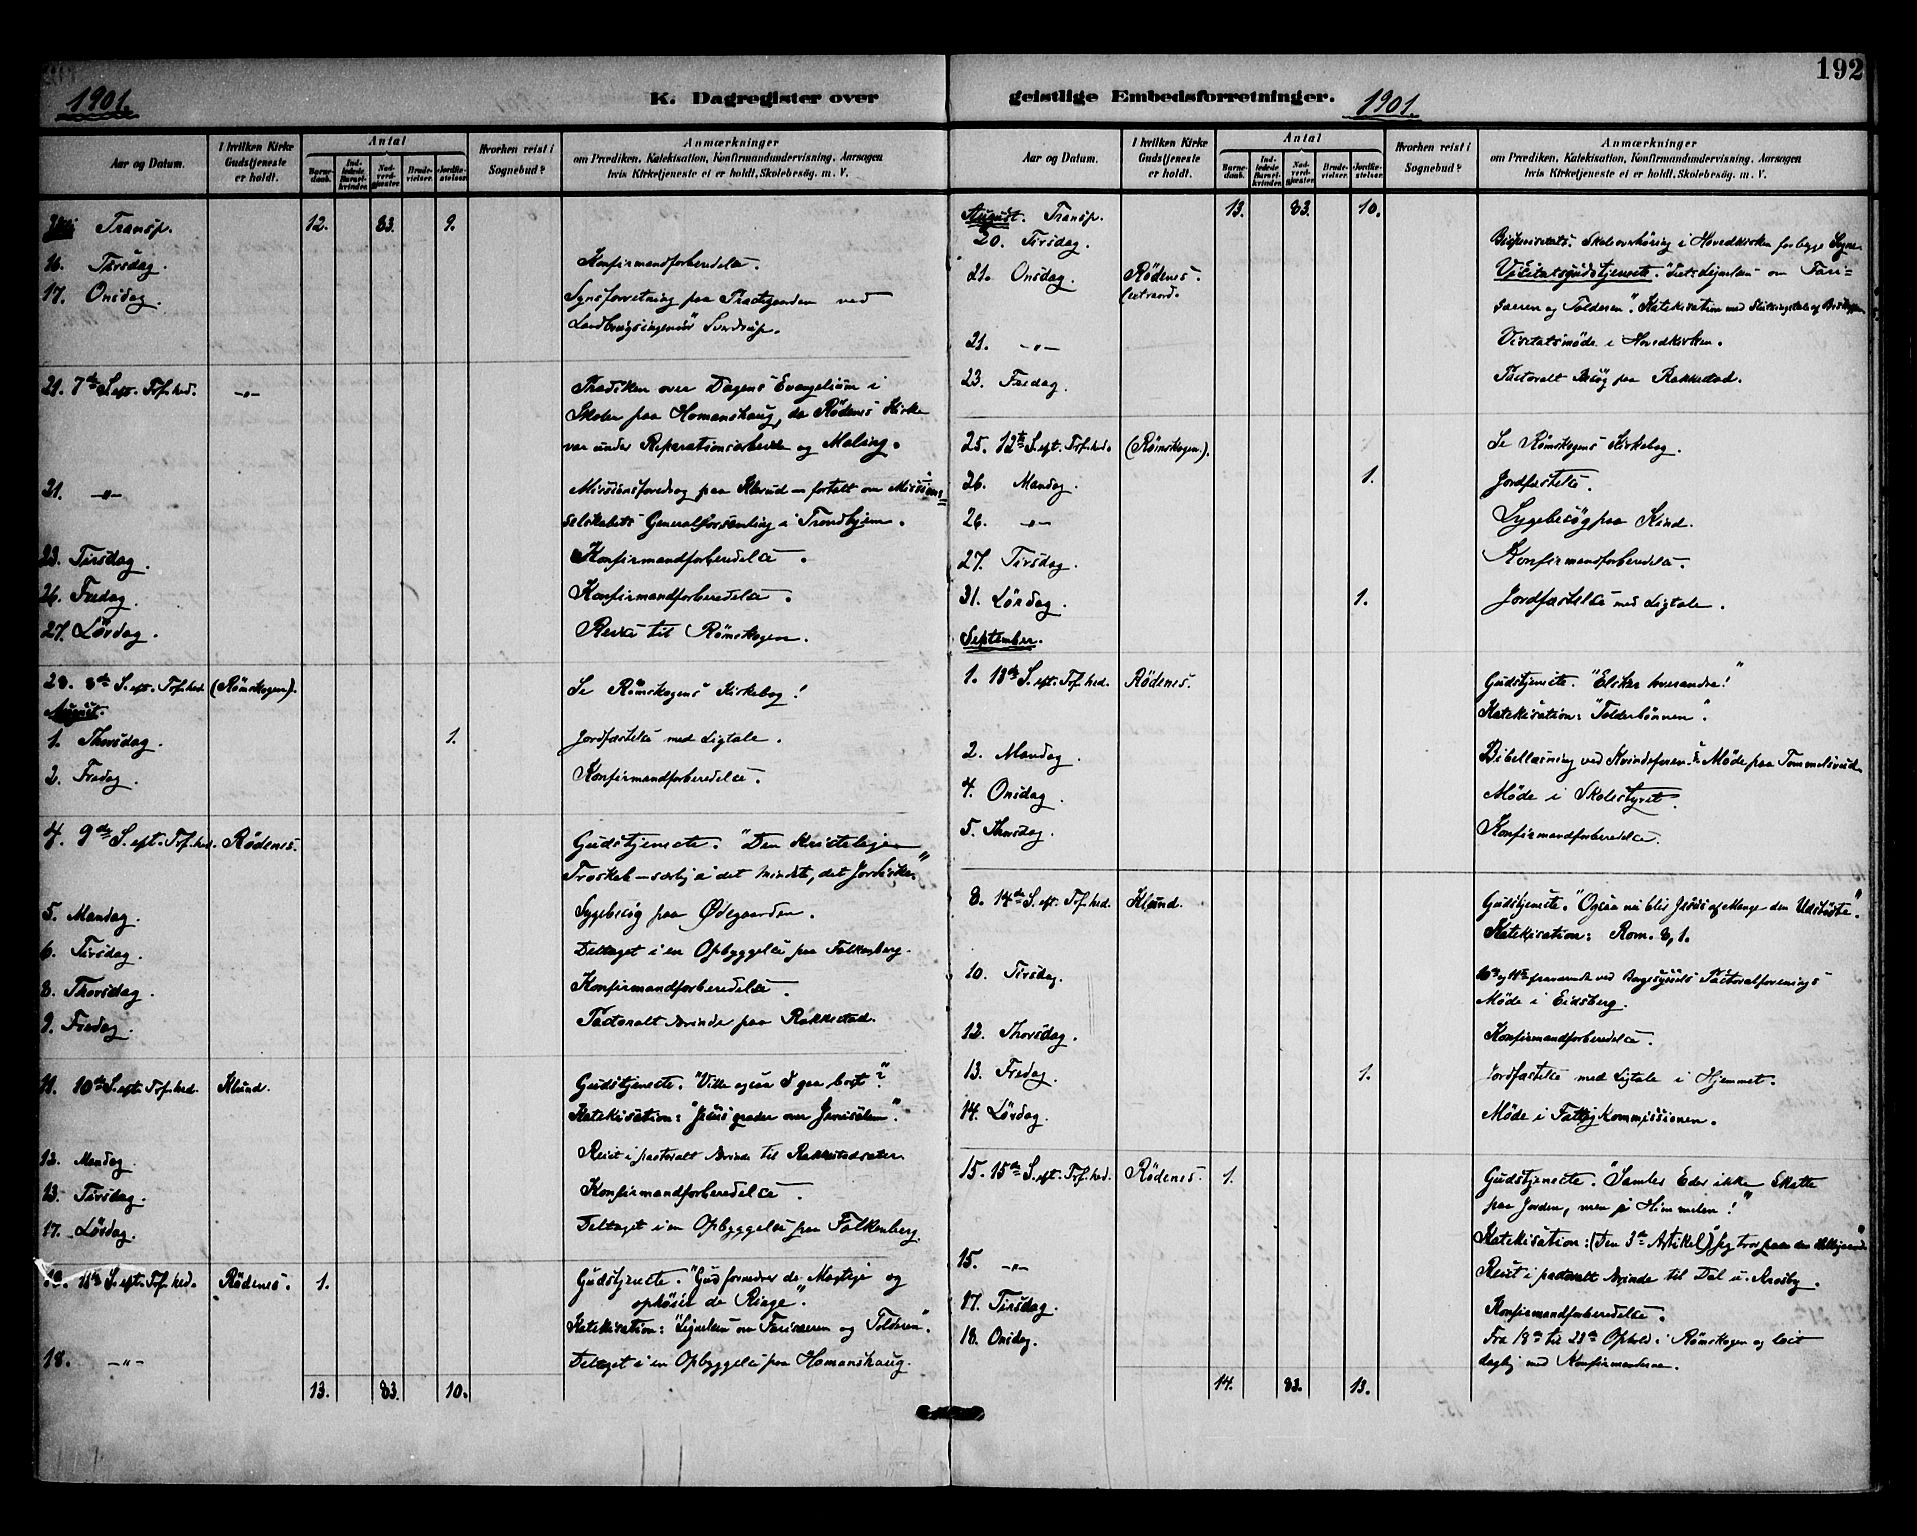 1901.
K. Dagregister over
Aar og Datum.
I hvilken Kirke Gudstjeneste er holdt.
Antal
Barnedaab.
Indledede Barselkvinder.
Nadverdgjæster.
Brudevielser.
Jordfæstelser.
Hvorhen reist i Sognebud?
Anmærkninger
om Prædiken, Katekisation, Konfirmandundervisning, Aarsagen
hvis Kirketjeneste ei er holdt, Skolebesøg, m. V.
Juli Transp. 12. 83. 9.
16. Tirsdag. Konfirmandforberedelse.
17. Onsdag. Synsforretning paa Præstegaarden ved
Landbrugsingeniør Sverdrup.
21. 7de S. eft. Tref.hed. -"- Prædiken over Dagens Evangelium i
Skolen paa Homanshaug, da Rødenes Kirke
var under Reparationsarbeide og Maling.
21. -"- Missionsforedrag paa Klund - fortalt om Missions=
selskabets Generalforsamling i Trondhjem.
23. Tirsdag. Konfirmandforberedelse.
26. Fredag. Konfirmandforberedelse.
27. Lördag. Reise til Rømskogen.
28. 8de S. eft. Tref.hed. (Rømskogen). Se Rømskogens Kirkebog!
August.
1. Thorsdag. 1. Jordfæstelse med Ligtale.
2. Fredag. Konfirmandforberedelse.
4. 9de S. eft. Tref.hed. Rødenes. Gudstjeneste. "Den kristelige
Troskab - særlig i det mindste, det Jordiske"
5. Mandag. Sygebesøg paa Ødegaarden.
6. Tirsdag. Deltaget i en Opbyggelse paa Falkenberg.
8. Thorsdag. Konfirmandforberedelse.
9. Fredag. Pastoralt Ærinde paa Rakkestad.
11. 10de S. eft. Tref.hed. Klund. Gudstjeneste. "Ville ogsaa I gaa bort"?
Katekisation: "Jesus græder over Jerusalem".
12. Mandag Reist i pastoralt Ærinde til
13. Tirsdag. Konfirmandforberedelse.
17. Lördag. Deltaget i en Opbyggelse paa Falkenberg.
18. 11te S. eft. Tref.hed. Rødenes. 1. Gudstjeneste. "Gud fornedrer de Mægtige og
ophöier de Ringe".
Katekisation: "Lignelsen om Farisæeren og Tolderen".
18. -"- Deltaget i en Opbyggelse paa Homanshaug.
13. 83. 10.
192
geistlige Embedsforretninger. 1901.
Aar og Datum.
I hvilken Kirke Gudstjeneste er holdt.
Antal
Barnedaab.
Indledede Barselkvinder.
Nadverdgjæster.
Brudevielser.
Jordfæstelser.
Hvorhen reist i Sognebud?
Anmærkninger
om Prædiken, Katekisation, Konfirmandundervisning, Aarsagen
hvis Kirketjeneste ei er holdt, Skolebesøg, m. V.
August. Transp. 13. 83. 10.
20. Tirsdag. Bispevisitats. Skoleoverhøring i Hovedkirken for begge Sogne.
21. Onsdag. Rødenes. Visitatsgudstjeneste. "Jesu Lignelse om Fari=
(extraord. sæeren og Tolderen". Katekisation med Slutningstale af Biskoppen
21. -"- Visitatsmøde i Hovedkirken.
23. Fredag. Pastoralt Besøg paa Rakkestad.
25. 12te S. eft. Tref.hed. (Rømskogen). Se Rømskogens Kirkebog.
26. Mandag. 1. Jordfæstelse.
26. -"- Sygebesøg paa Kind.
27. Tirsdag. Konfirmandforberedelse.
31. Lördag. 1. Jordfæstelse med Ligtale.
September.
1. 13de S. eft. Tref.hed. Rødenes. Gudstjeneste. "Elsker hverandre!"
Katekisation: "Tolderbønnen".
2. Mandag. Bibellæsning ved Kvindeforen.s Møde paa
4. Onsdag. Møde i Skolestyret.
5. Thorsdag. Konfirmandforberedelse.
8. 14de S. eft. Tref.hed. Klund. Gudstjeneste. "Ogsaa nu blir Jesus af Mange den Udstødte".
Katekisation: Rom. 8,1.
10. Tirsdag. 10de og 11te fraværende ved Borgesyssels Pastoralforenings
Møde i Eidsberg.
12. Thorsdag. Konfirmandforberedelse.
13. Fredag. 1. Jordfæstelse med Ligtale i Hjemmet.
14. Lördag. Møde i Fattigkommissionen.
15. 15de S. eft. Tref.hed. Rødenes. 1. Gudstjeneste. "Samler Eder ikke Skatte
paa Jorden, men i Himmelen!"
Katekisation: (Den 3die Artikel) "Jeg tror paa den Helligaand"
15. -"- Reist i pastoralt Ærinde til Dal u. Krosby.
17. Tirsdag. Konfirmandforberedelse.
18. Onsdag. Fra 18de til 23de Ophold i Rømskogen og læst
daglig med Konfirmanterne.
14. 83. 13.